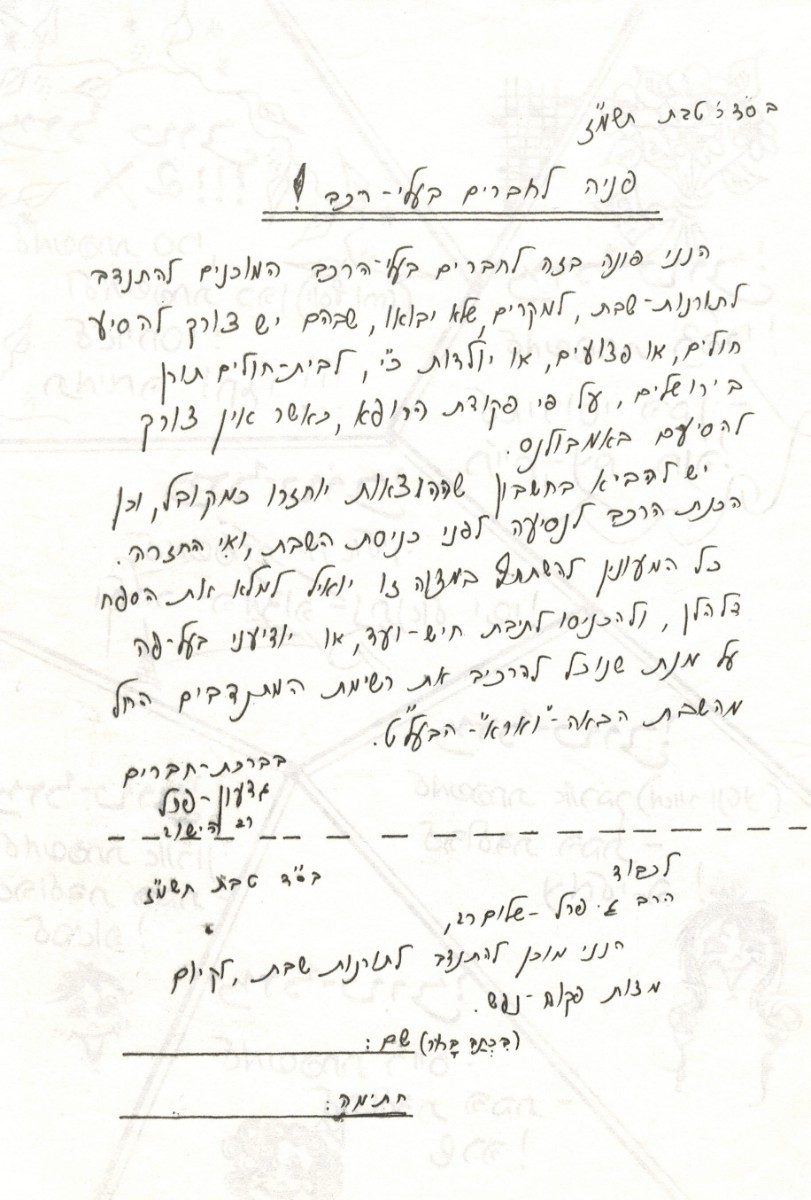 בס"ד ג' טבת תשמ"ז
פניה לחברים בעלי-רכב !
הנני פונה בזה לחברים בעלי-הרכב המוכנים להתנדב
לתורנות-שבת, למקרים, שלא יבואו, שבהם יש צורך להסיע
חולים, או פצועים, או יולדות כ"י, לבית-חולים תורן
בירושלים, על פי פקודת הרופא, כאשר אין צורך
להסיעם באמבולנס.
יש להביא בחשבון שההוצאות יוחזרו כמקובל, וכן
הכנת הרכב לנסיעה לפני כניסת השבת, ואי החזרה.
כל המעונין להשתתף במצוה זו יואיל למלא את הספח
דלהלן, ולהכניסו לתיבת חיש-ועד, או יודיעני בעל-פה
על מנת שנוכל להרכיב את רשימת המתנדבים החל
מהשבת הבאה-"וארא"-הבעל"ט.
בברכת-חברים
גדעון-פרל
רב הישוב
בס"ד טבת תשמ"ז
לכבוד
הרב ג. פרל - שלום רב,
הנני מוכן להתנדב לתורנות שבת, לקיום
מצות פקוח-נפש.
(בִּכְתַב בָּרוּר) שם:
חתימה: